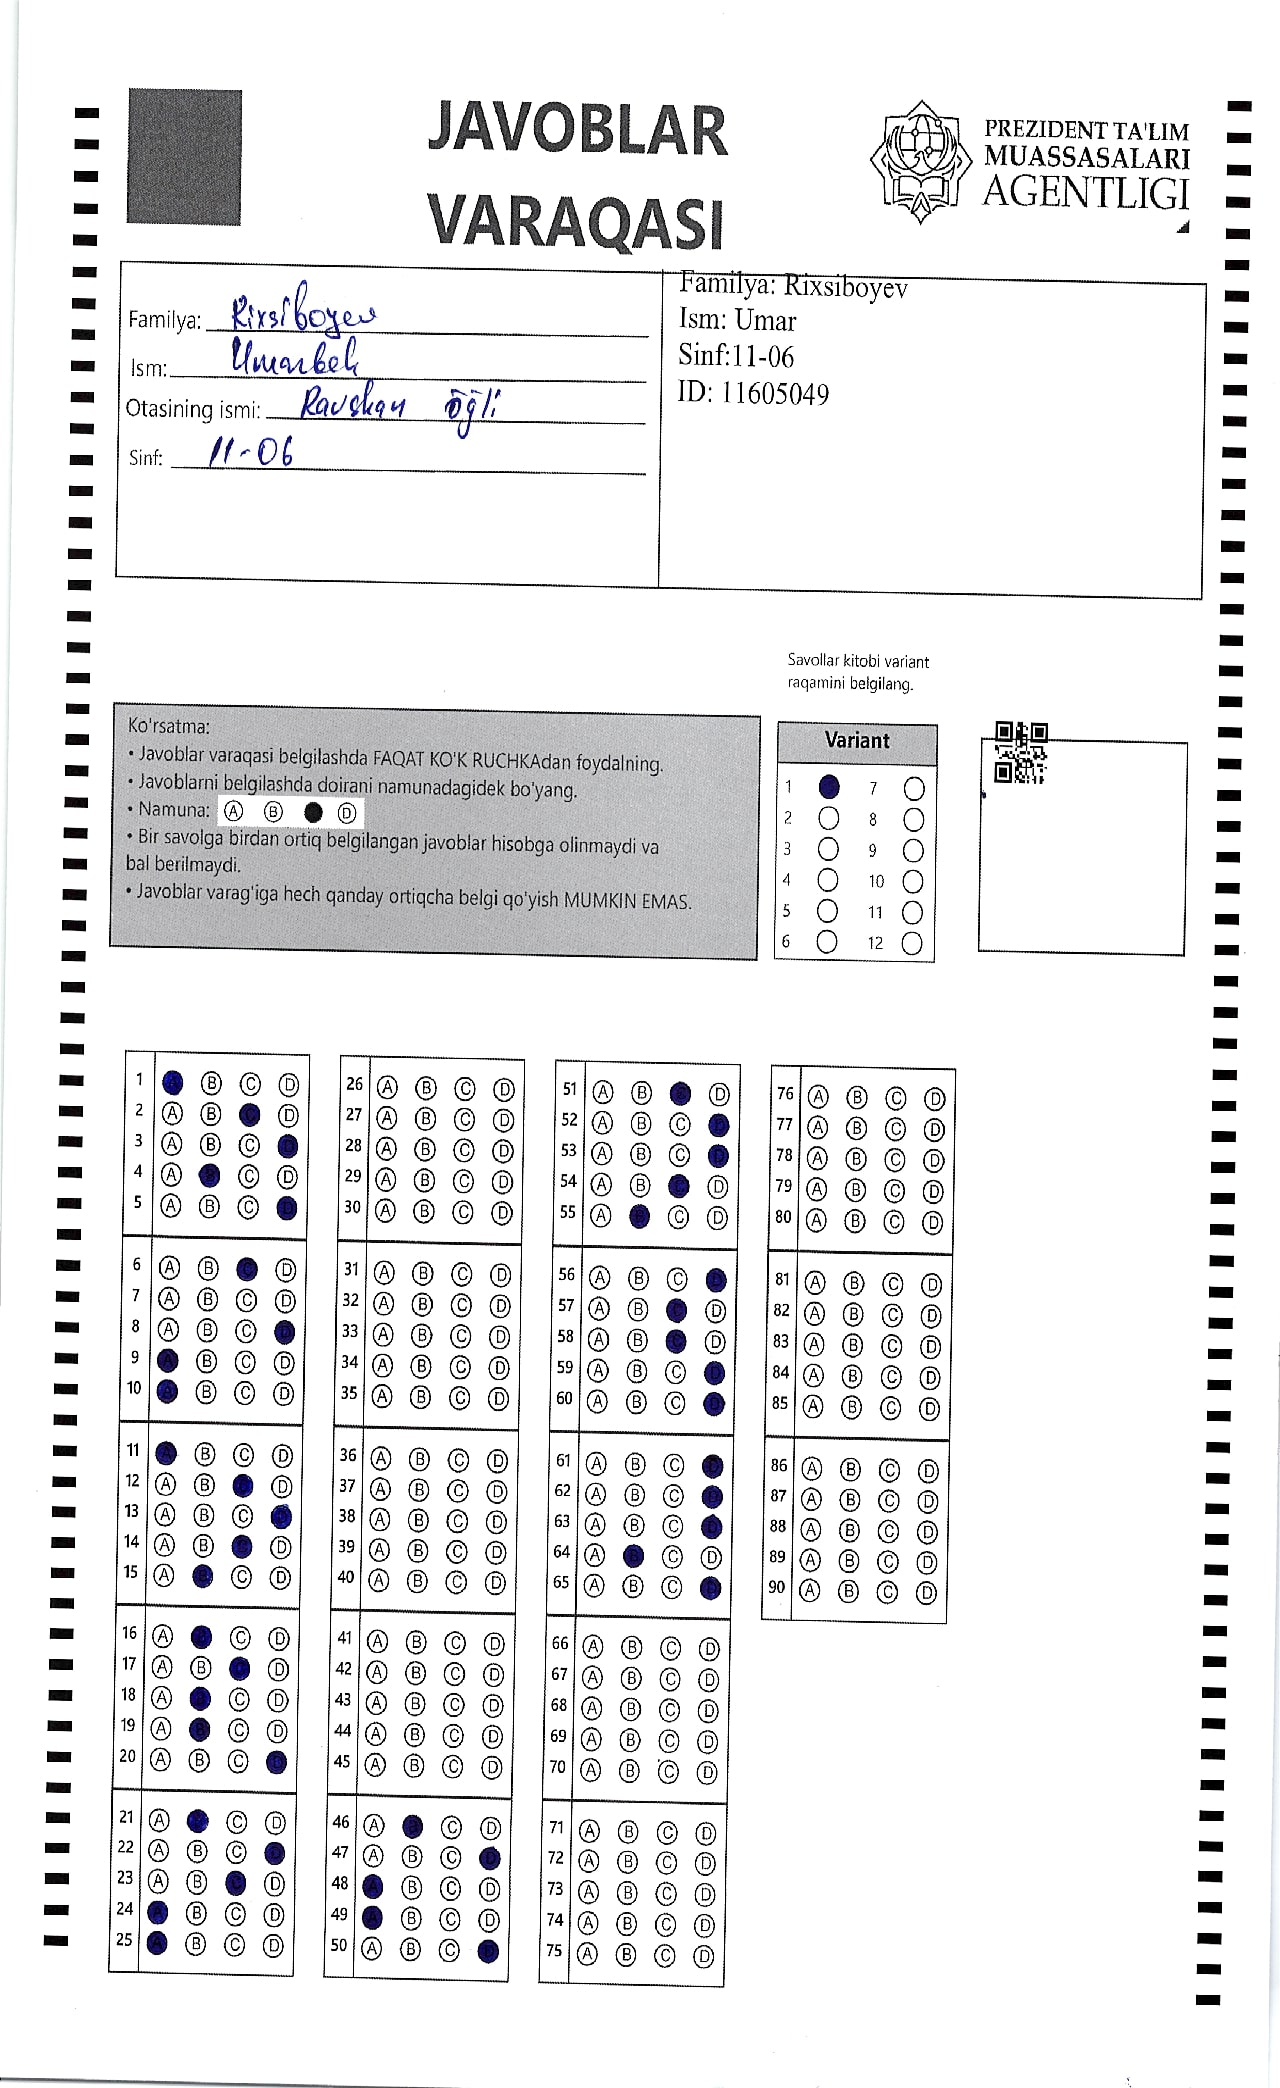 JAVOBLAR
VARAQASI
PREZIDENT TA'LIM
MUASSASALARI
AGENTLIGI
Familya: Rixsiboyev
Ism: Umarbek
Otasining ismi: Ravshan o'g'li
Sinf: 11-06
Familya: Rixsiboyev
Ism: Umar
Sinf:11-06
ID: 11605049
Savollar kitobi variant
raqamini belgilang.
Ko'rsatma:
• Javoblar varaqasi belgilashda FAQAT KO'K RUCHKAdan foydalning.
• Javoblarni belgilashda doirani namunadagidek bo'yang.
• Namuna: A B D
• Bir savolga birdan ortiq belgilangan javoblar hisobga olinmaydi va
bal berilmaydi.
• Javoblar varag'iga hech qanday ortiqcha belgi qo'yish MUMKIN EMAS.
Variant
1 7
2 8
3 9
4 10
5 11
6 12
1 A B C D
2 A B C D
3 A B C D
4 A B C D
5 A B C D
6 A B C D
7 A B C D
8 A B C D
9 A B C D
10 A B C D
11 A B C D
12 A B C D
13 A B C D
14 A B C D
15 A B C D
16 A B C D
17 A B C D
18 A B C D
19 A B C D
20 A B C D
21 A B C D
22 A B C D
23 A B C D
24 A B C D
25 A B C D
26 A B C D
27 A B C D
28 A B C D
29 A B C D
30 A B C D
31 A B C D
32 A B C D
33 A B C D
34 A B C D
35 A B C D
36 A B C D
37 A B C D
38 A B C D
39 A B C D
40 A B C D
41 A B C D
42 A B C D
43 A B C D
44 A B C D
45 A B C D
46 A B C D
47 A B C D
48 A B C D
49 A B C D
50 A B C D
51 A B C D
52 A B C D
53 A B C D
54 A B C D
55 A B C D
56 A B C D
57 A B C D
58 A B C D
59 A B C D
60 A B C D
61 A B C D
62 A B C D
63 A B C D
64 A B C D
65 A B C D
66 A B C D
67 A B C D
68 A B C D
69 A B C D
70 A B C D
71 A B C D
72 A B C D
73 A B C D
74 A B C D
75 A B C D
76 A B C D
77 A B C D
78 A B C D
79 A B C D
80 A B C D
81 A B C D
82 A B C D
83 A B C D
84 A B C D
85 A B C D
86 A B C D
87 A B C D
88 A B C D
89 A B C D
90 A B C D